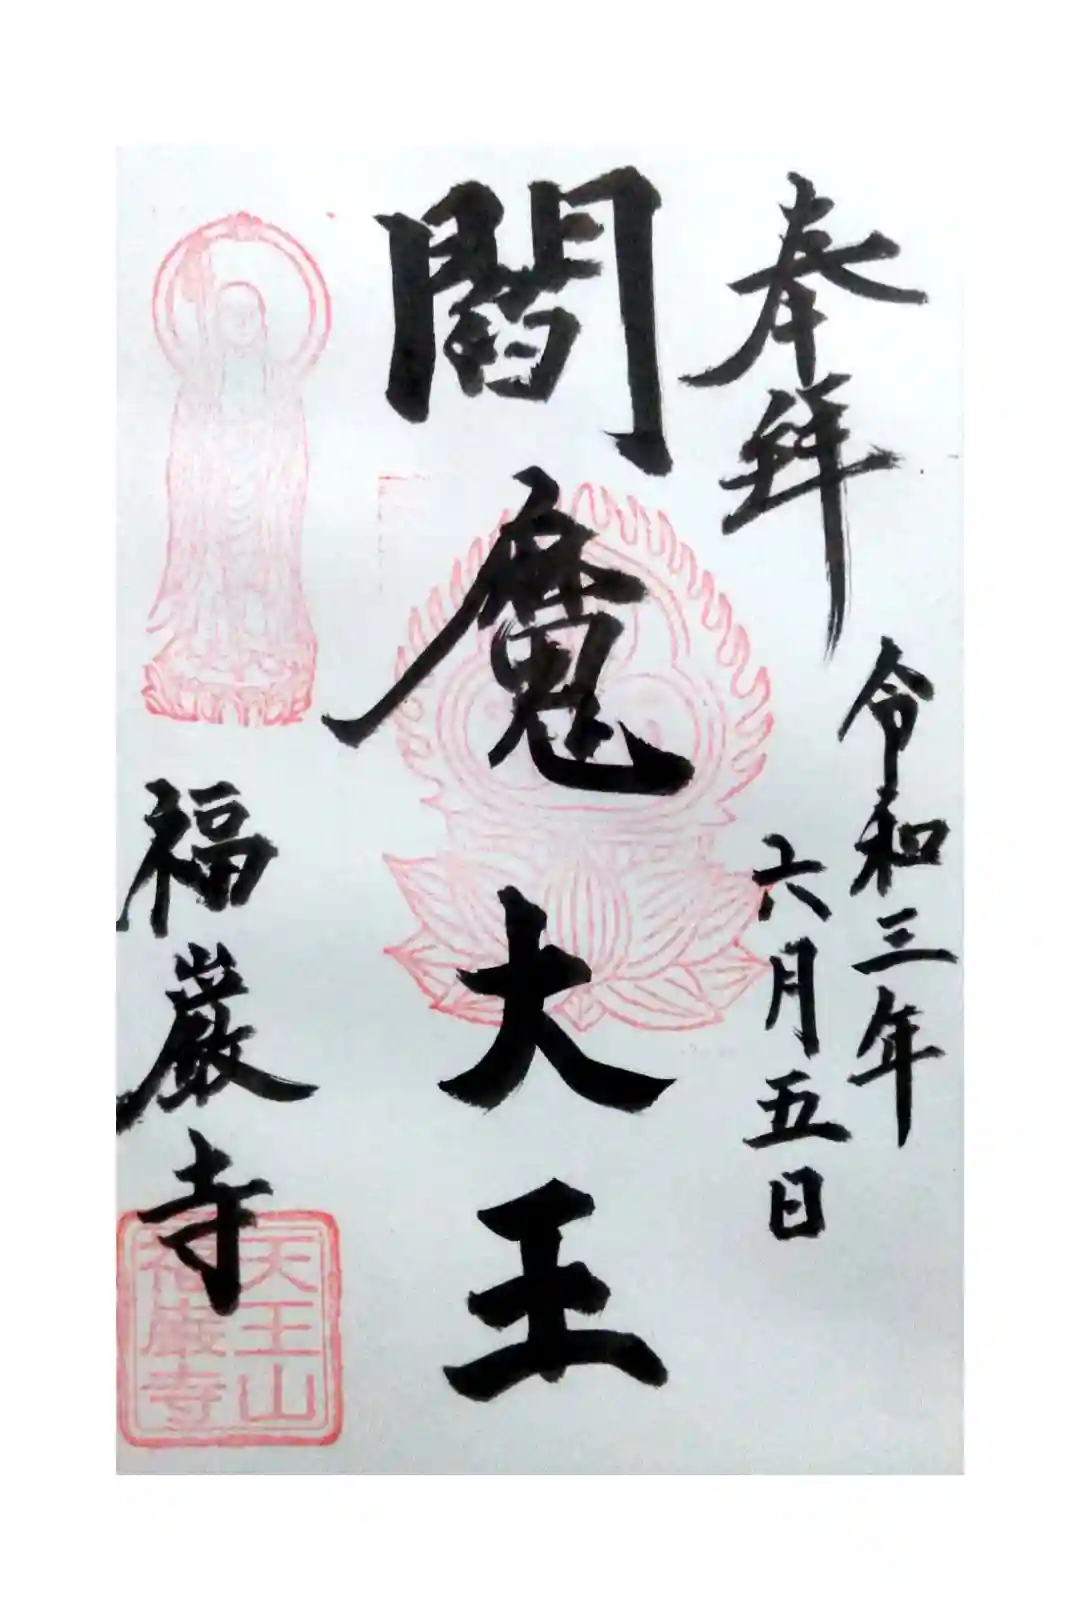 奉拜
令和三年
六月五日
閻魔大王
福巖寺
天王山
福巖寺